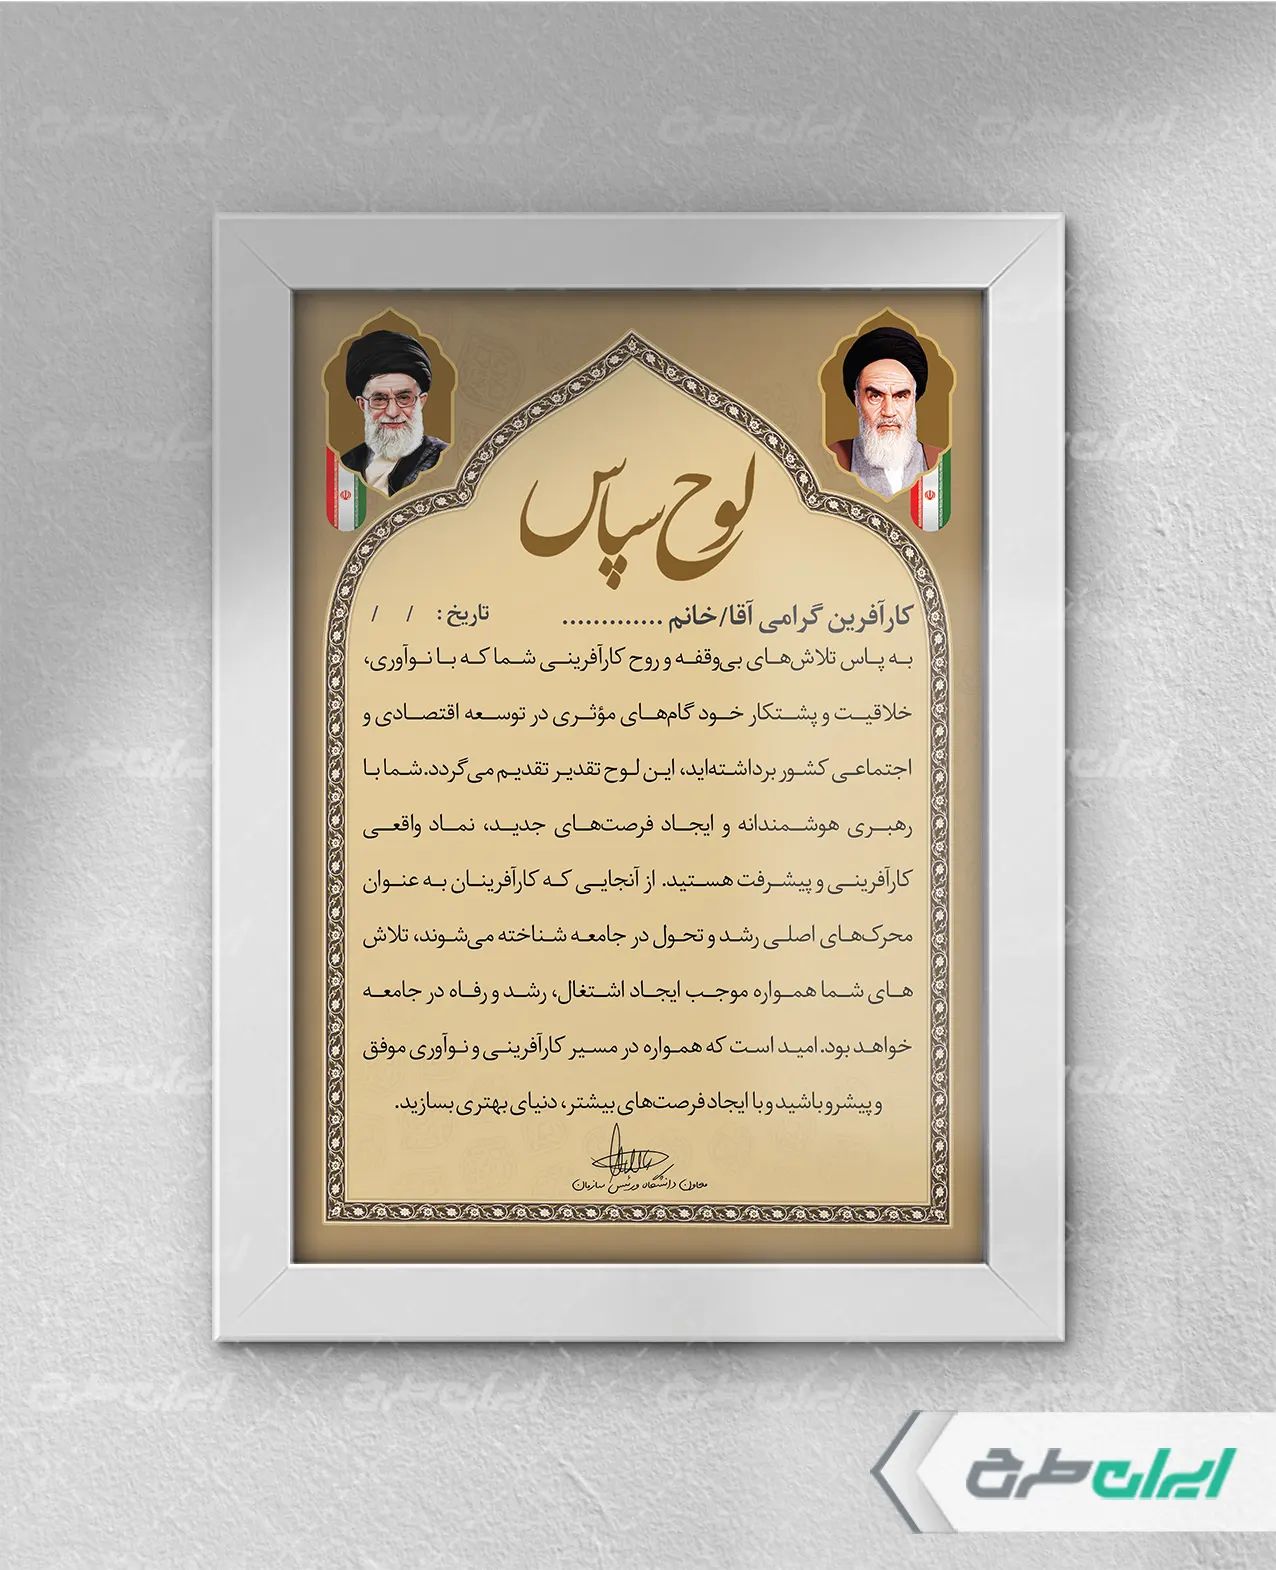 لوح سپاس
کارآفرین گرامی آقا/خانم .............
تاریخ : / /
به پاس تلاش‌های بی‌وقفه و روح کارآفرینی شما که با نوآوری،
خلاقیت و پشتکار خود گام‌های مؤثری در توسعه اقتصادی و
اجتماعی کشور برداشته‌اید، این لوح تقدیر تقدیم می‌گردد.شما با
رهبری هوشمندانه و ایجاد فرصت‌های جدید، نماد واقعی
کارآفرینی و پیشرفت هستید. از آنجایی که کارآفرینان به عنوان
محرک‌های اصلی رشد و تحول در جامعه شناخته می‌شوند، تلاش
های شما همواره موجب ایجاد اشتغال، رشد و رفاه در جامعه
خواهد بود. امید است که همواره در مسیر کارآفرینی و نوآوری موفق
و پیشرو باشید و با ایجاد فرصت‌های بیشتر، دنیای بهتری بسازید.
معاون دانشگاه ورئیس سازمان
ایران طرح